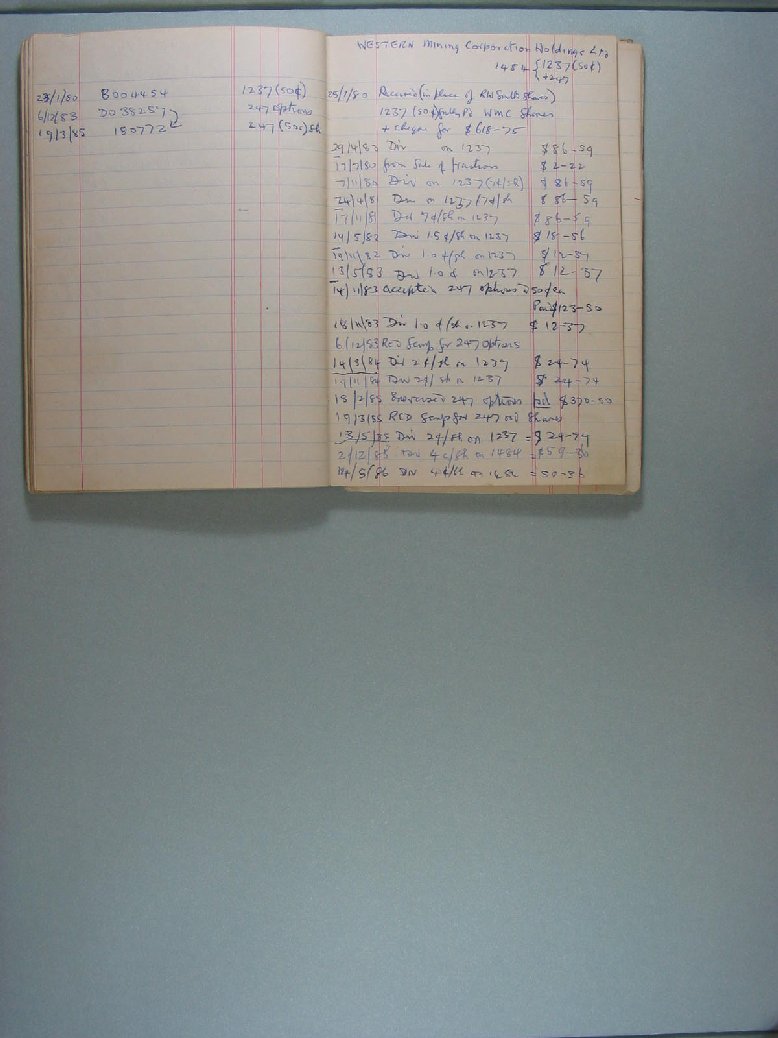 23/1/80 B004454 1237 (50¢)
6/12/83 D038257 247 options
19/3/85 150772 247 (50c) sh
WESTERN Mining Corporation Holdings Ltd
1484 { 1237 (50¢)
+ 247
25/1/80 Received (in place of Shares)
1237 (50¢) WMC Shares
+ for $618-75
29/4/80 Div on 1237 $86-59
17/7/80 from Sale of fractions $2-22
7/11/80 Div on 1237 (7¢/sh) $86-59
24/4/81 Div on 1237 (7¢/sh $86-59
17/11/81 Div 7¢/sh on 1237 $86-59
14/5/82 Div 1.5¢/sh on 1237 $18-56
19/11/82 Div 1.0¢/sh on 1237 $12-37
13/5/83 Div 1.0¢ on 1237 $12-37
14/11/83 accepted 247 options 50¢/en
Paid $123-50
18/11/83 Div 1.0¢/sh on 1237 $12-37
6/12/83 RCD Scrip for 247 Options
14/3/84 Div 2¢/sh on 1237 $24-74
19/11/84 Div 2¢/sh on 1237 $24-74
15/2/85 Exercised 247 options pd $370-50
19/3/85 RCD Scrip for 247 ord Shares
13/5/85 Div 2¢/sh on 1237 = $24-74
2/12/85 Div 4c/sh on 1484 = $59-36
/5/86 Div 4¢/sh on = 59-36